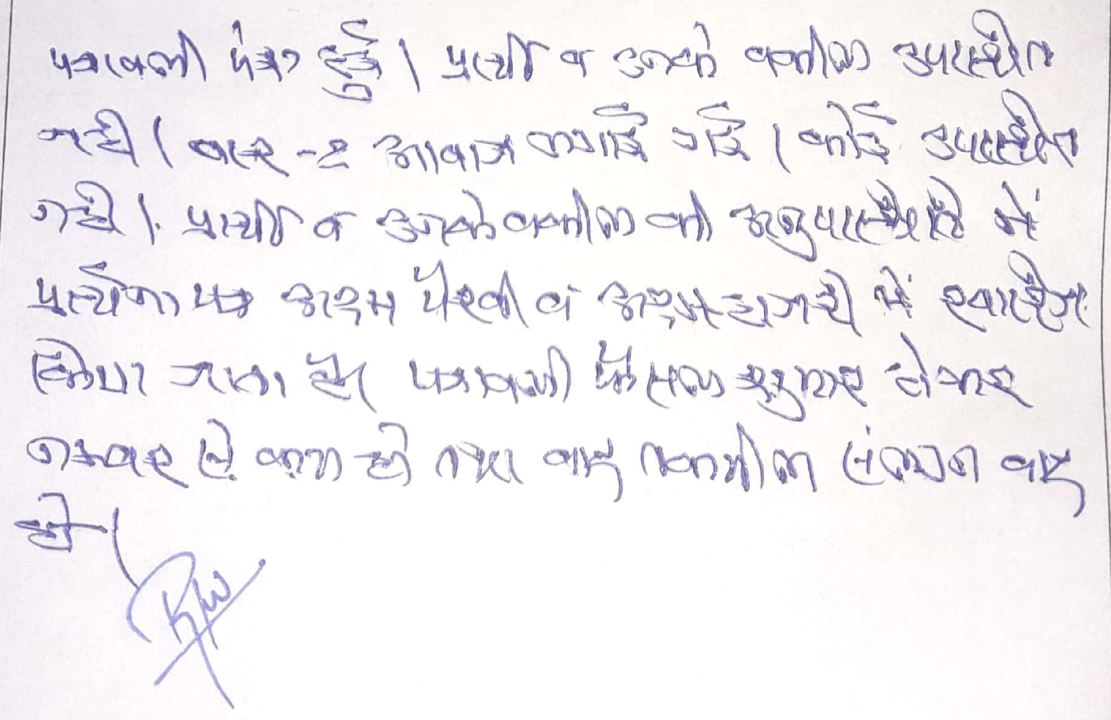 पत्रावली पेश हुई। प्रार्थी व उनके वकील उपस्थित
नही। बार-२ आवाज लगाई गई। कोई उपस्थित
नही। प्रार्थी व उनके वकील की अनुपस्थिति में
प्रार्थना पत्र अदम पैरवी व अदम हाजरी में खारिज
किया जाता है। पत्रावली फैसल शुमार होकर
नम्बर से कम हो तथा बाद तकमील संलग्न वाद
हो।